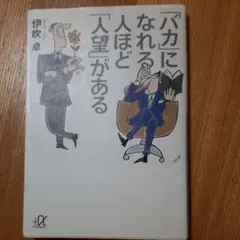 「バカ」に
なれる
人ほど
「人望」がある
伊吹 卓
+α